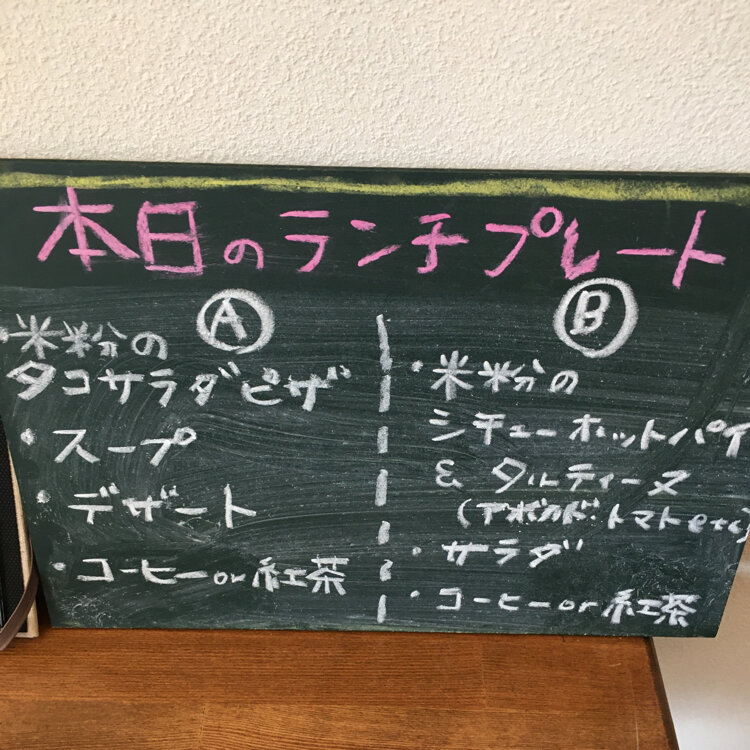 本日のランチプレート
Ⓐ
・米粉の
タコサラダピザ
・スープ
・デザート
・コーヒーor紅茶
Ⓑ
・米粉の
シチューホットパイ
& タルティーヌ
(アボカド・トマトetc)
・サラダ
・コーヒーor紅茶